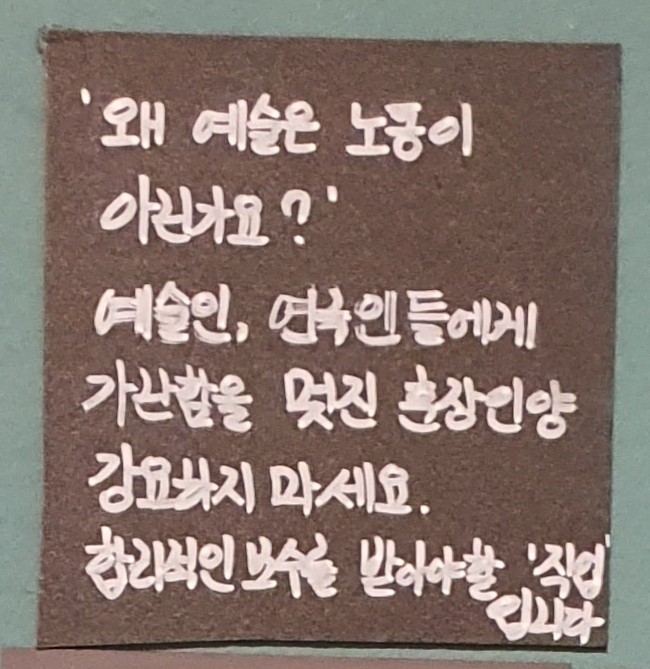 '왜 예술은 노동이
아닌가요?'
예술인, 연극인들에게
가난함을 멋진 훈장인양
강요하지 마세요.
합리적인 보수를 받아야할 '직업'
입니다